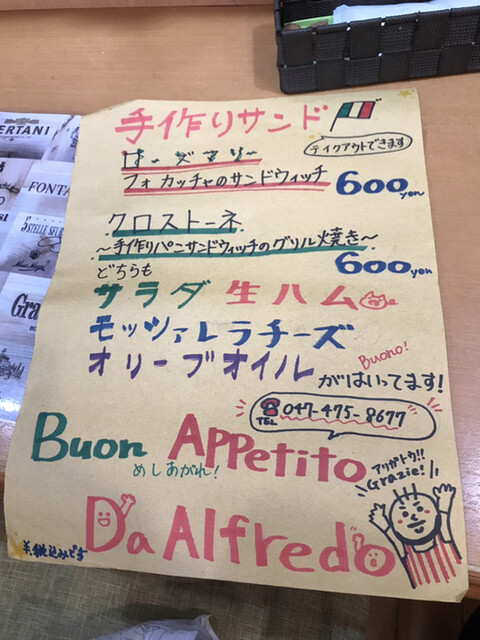 手作りサンド
テイクアウトできます
ローズマリー
フォカッチャのサンドウィッチ 600yen
クロストーネ
～手作りパニサンドウィッチのグリル焼き～
どちらも 600yen
サラダ 生ハム
モッツァレラチーズ
オリーブオイル Buono!
がはいってます!
TEL 047-475-8677
Buon Appetito
めしあがれ!
アリガトウ!!
Grazie!
Da Alfredo
※税込みです
ERTANI
FONTA
STELLE
Gra